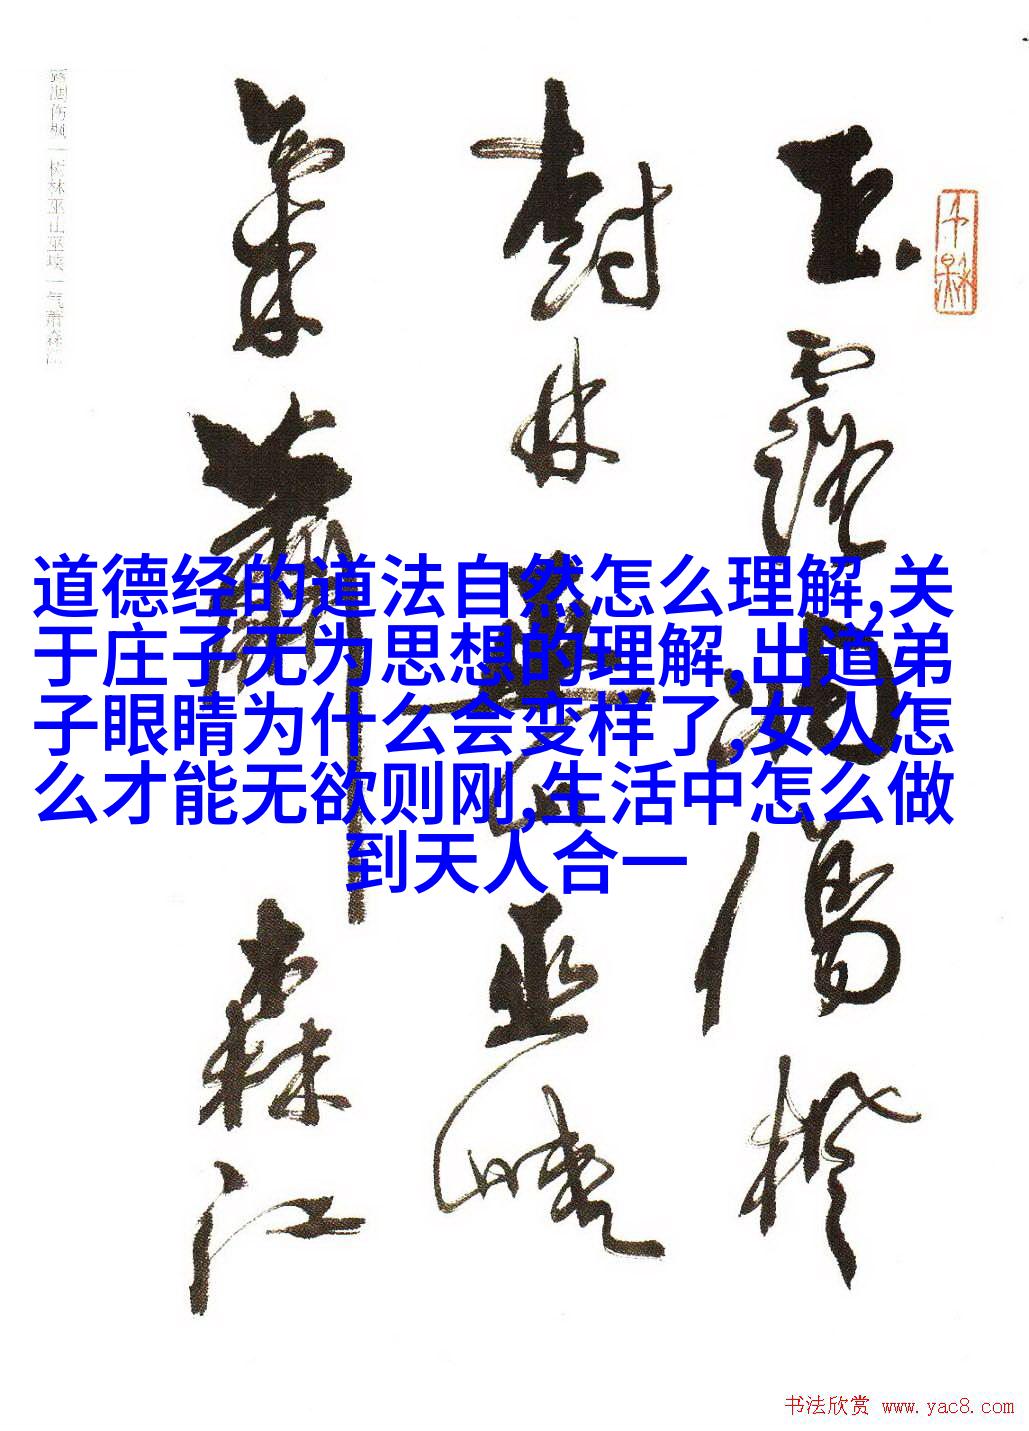 玉露凋伤枫
树林巫山巫峡
气萧森江
露凋伤枫一树林巫山巫峡一气萧森江
道德经的道法自然怎么理解,关
于庄子无为思想的理解,出道弟
子眼睛为什么会变样了,女人怎
么才能无欲则刚,生活中怎么做
到天人合一
书法欣赏 www.yac8.com